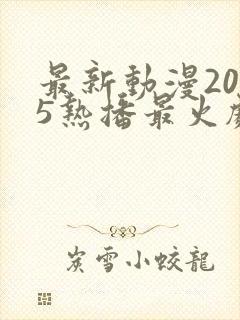 最新動漫20
5熱播最火
炭雪小蛟龍